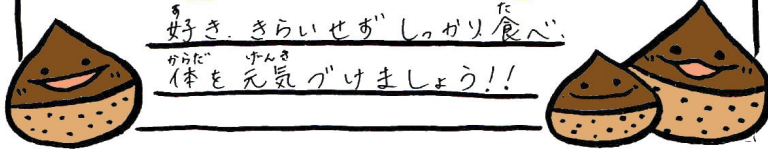 好き、きらいせず しっかり食べ、
体を元気づけましょう!!